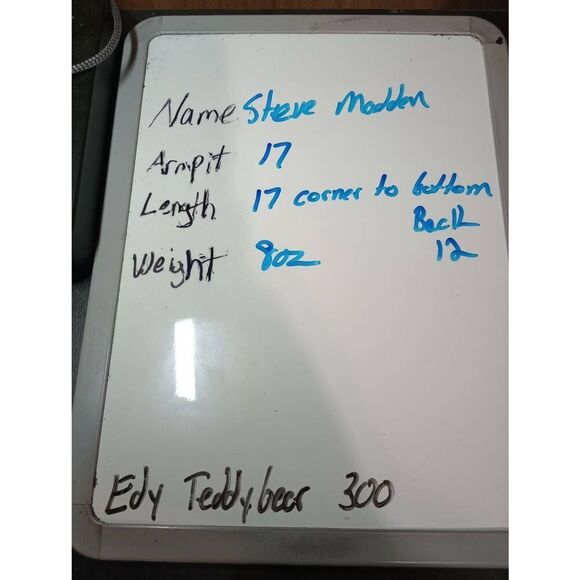 Name Steve Madden
Armpit 17
Length 17 corner to bottom
Back
Weight 8oz 12
Edy Teddybear 300